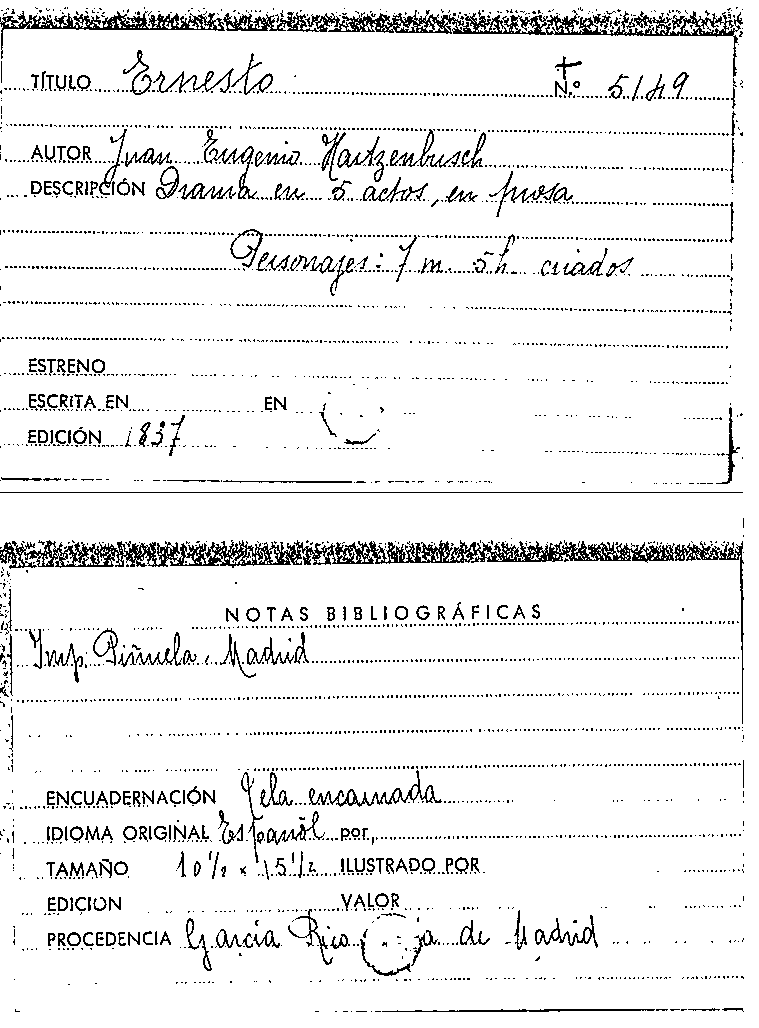 TÍTULO Ernesto Nº 5149
AUTOR Juan Eugenio Hartzenbusch
DESCRIPCIÓN Drama en 5 actos, en prosa
Personajes: 7 m. 5 h. criados
ESTRENO
ESCRITA EN EN
EDICIÓN 1837
NOTAS BIBLIOGRÁFICAS
Imp. Piñuela. Madrid
ENCUADERNACIÓN Tela encarnada
IDIOMA ORIGINAL Español por,
TAMAÑO 10 1/2 x 15 1/2 ILUSTRADO POR
EDICION VALOR
PROCEDENCIA García Rico de Madrid